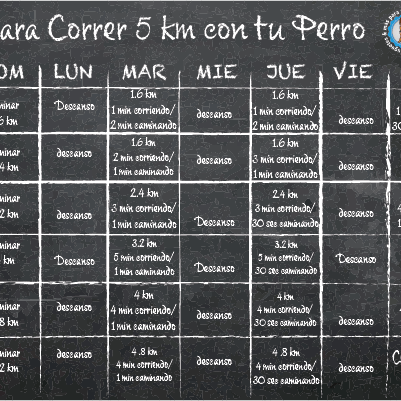 ara Correr 5 km con tu Perro
OM LUN MAR MIE JUE VIE
minar
6 km
Descanso
1.6 km
1 min corriendo/
2 min caminando
descanso
1.6 km
1 min corriendo/
2 min caminando
descanso
minar
4 km
descanso
1.6 km
2 min corriendo/
1 min caminando
descanso
1.6 km
3 min corriendo/
1 min caminando
descanso
minar
2 km
descanso
2.4 km
3 min corriendo/
1 min caminando
Descanso
2.4 km
3 min corriendo/
30 sec caminando
descanso
minar
km
Descanso
3.2 km
5 min corriendo/
1 min caminando
Descanso
3.2 km
5 min corriendo/
30 sec caminando
Descanso
minar
8 km
descanso
4 km
4 min corriendo/
1 min caminando
descanso
4 km
4 min corriendo/
30 sec caminando
descanso
minar
2 km
descanso
4.8 km
4 min corriendo/
1 min caminando
descanso
4.8 km
4 min corriendo/
30 sec caminando
descanso